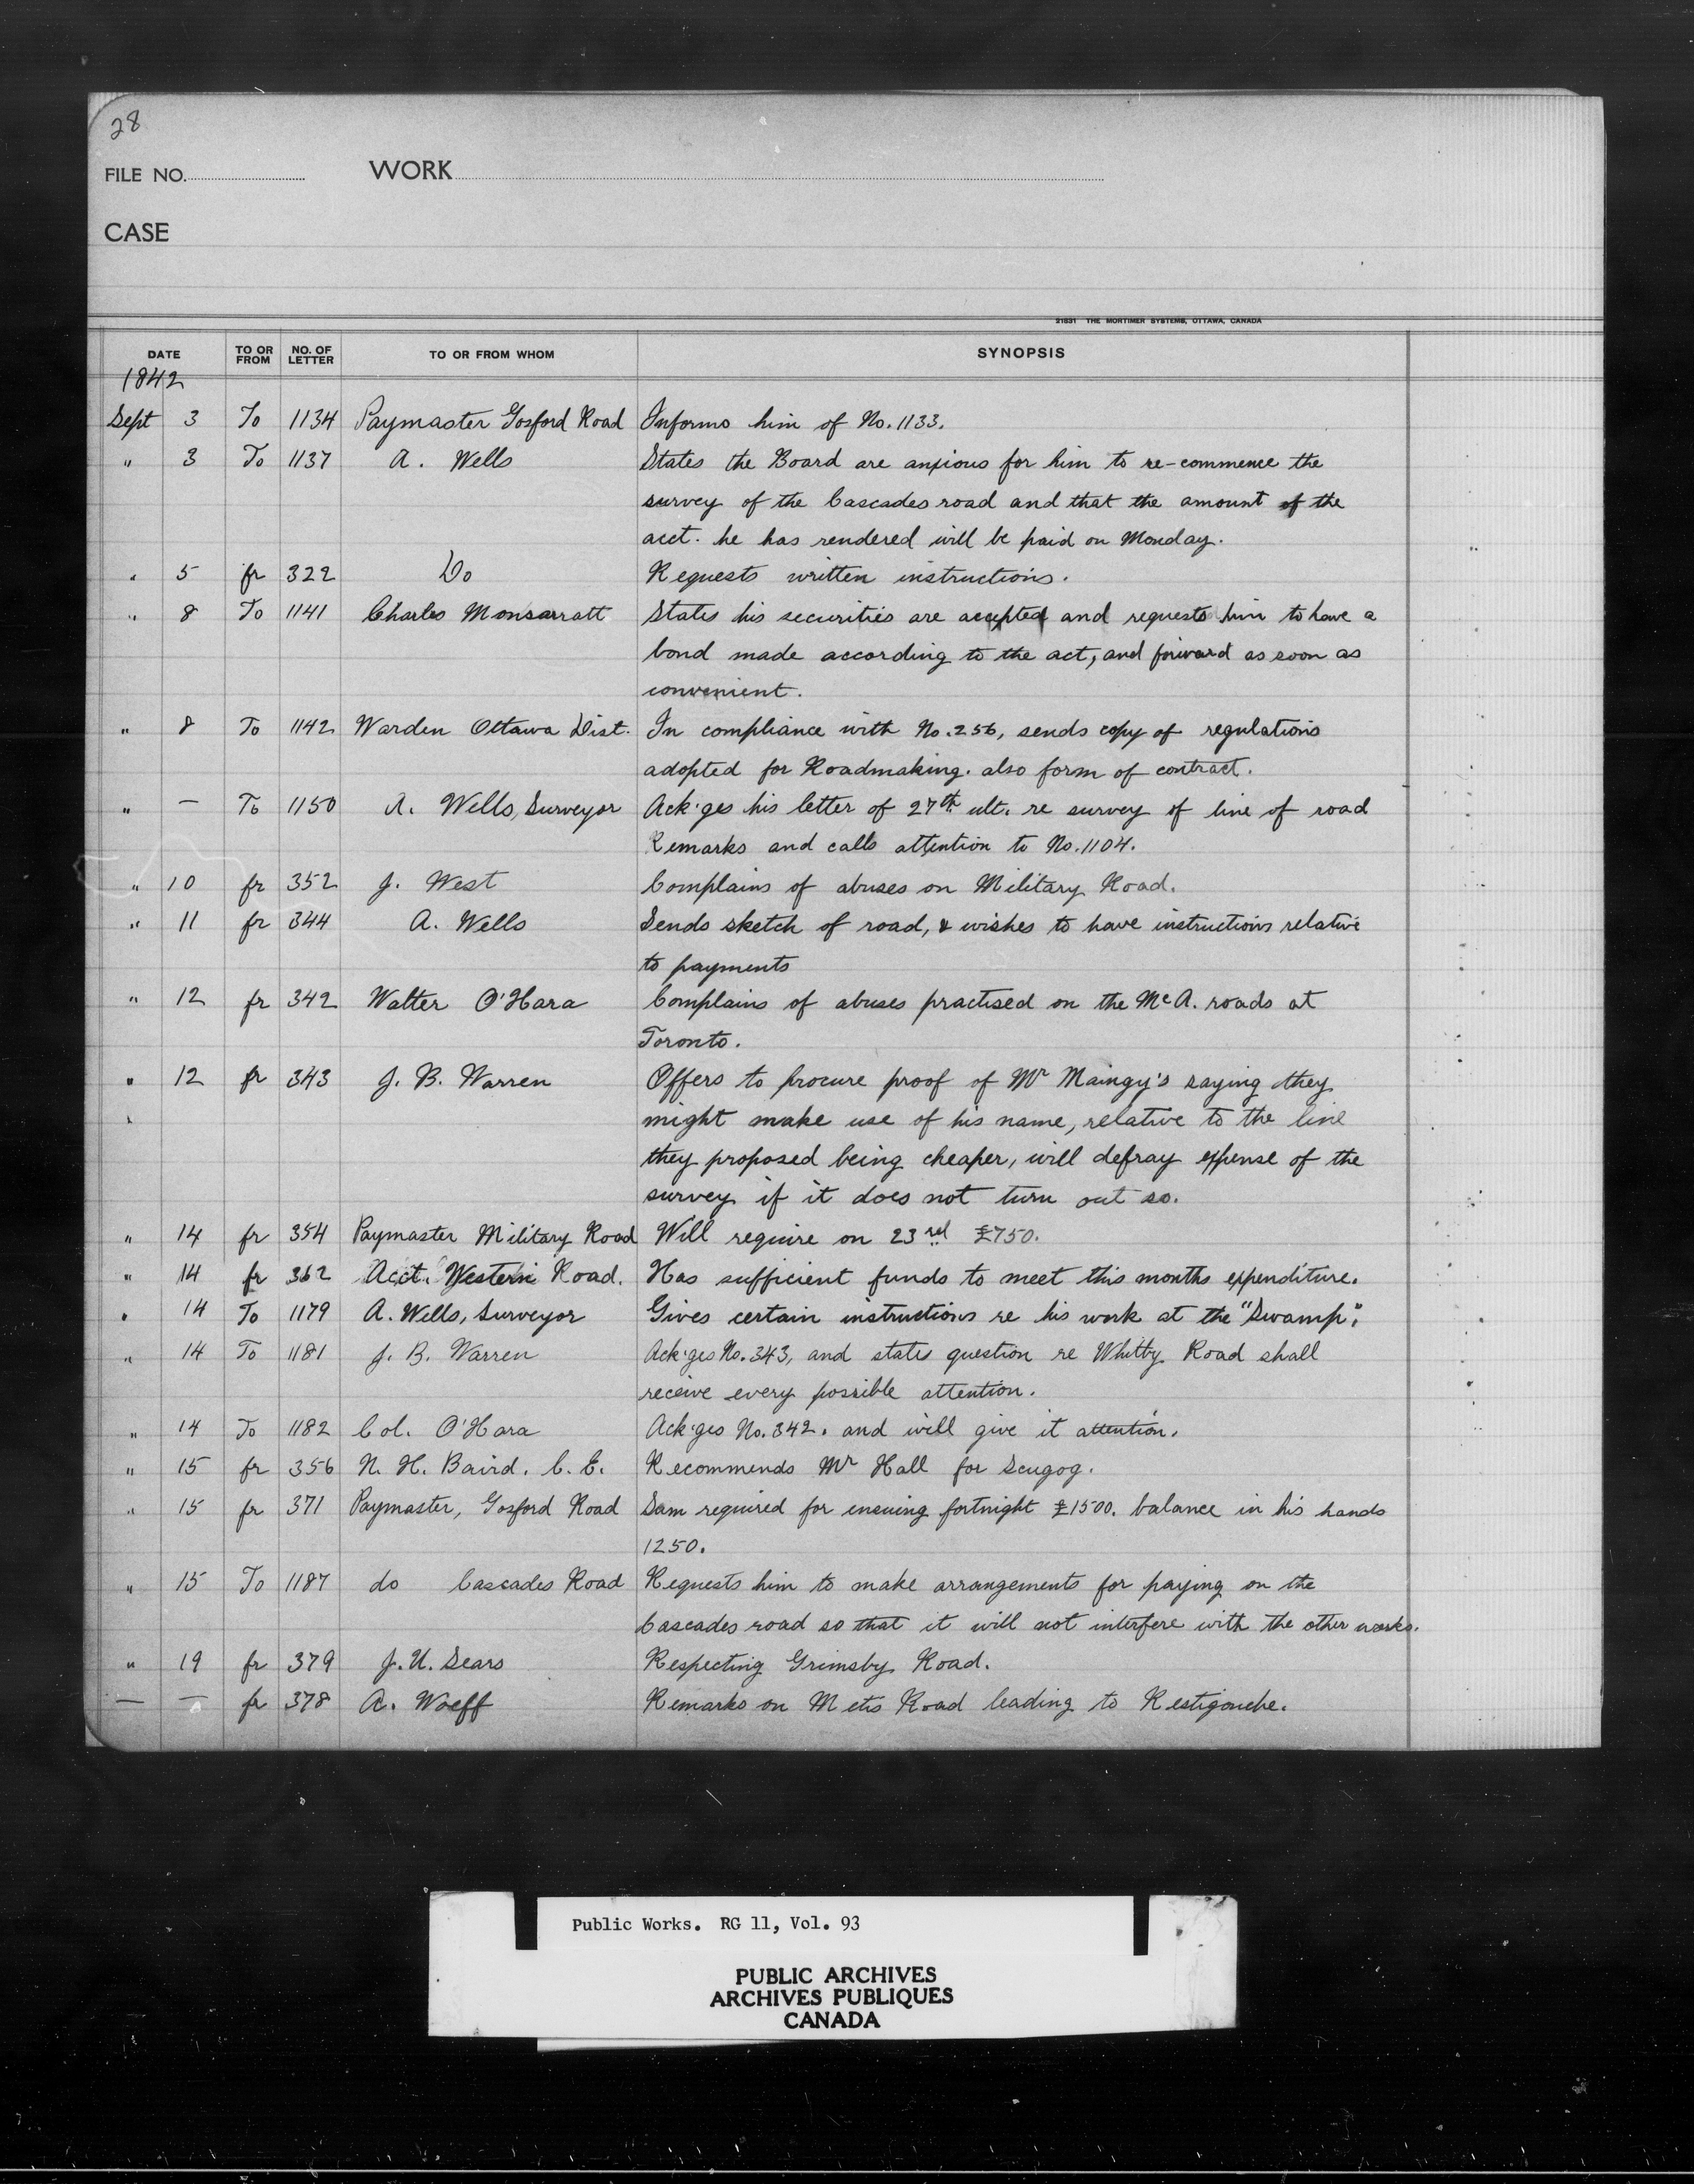 28
FILE NO. WORK
CASE
21531 THE MORTIMER SYSTEMS, OTTAWA, CANADA
DATE TO OR FROM NO. OF LETTER TO OR FROM WHOM SYNOPSIS
1842
Sept 3 To 1134 Paymaster Gosford Road Informs him of No. 1133.
" 3 To 1137 A. Wells States the Board are anxious for him to re-commence the
survey of the Cascades road and that the amount of the
acct. he has rendered will be paid on Monday.
" 5 fr 322 Do Requests written instructions.
" 8 To 1141 Charles Monsarratt States his securities are accepted and requests him to have a
bond made according to the act, and forward as soon as
convenient.
" 8 To 1142 Warden Ottawa Dist. In compliance with No. 256, sends copy of regulations
adopted for Roadmaking. also form of contract.
" — To 1150 A. Wells, Surveyor Ack'ges his letter of 27th ult. re survey of line of road
Remarks and calls attention to No. 1104.
" 10 fr 352 J. West Complains of abuses on Military Road.
" 11 fr 344 A. Wells Sends sketch of road, & wishes to have instructions relative
to payments
" 12 fr 342 Walter O'Hara Complains of abuses practised on the McA. roads at
Toronto.
" 12 fr 343 J. B. Warren Offers to procure proof of Mr Maingy's saying they
might make use of his name, relative to the line
they proposed being cheaper, will defray expense of the
survey if it does not turn out so.
" 14 fr 354 Paymaster Military Road Will require on 23rd £750.
" 14 fr 362 Acct. Western Road. Has sufficient funds to meet this months expenditure.
" 14 To 1179 A. Wells, Surveyor Gives certain instructions re his work at the "Swamp".
" 14 To 1181 J. B. Warren Ack'ges No. 343, and states question re Whitby Road shall
receive every possible attention.
" 14 To 1182 Col. O'Hara Ack'ges No. 342. and will give it attention.
" 15 fr 356 N. H. Baird. C. E. Recommends Mr Hall for Scugog.
" 15 fr 371 Paymaster, Gosford Road Sum required for ensuing fortnight £1500. balance in his hands
1250.
" 15 To 1187 do Cascades Road Requests him to make arrangements for paying on the
Cascades road so that it will not interfere with the other works.
" 19 fr 379 J. U. Sears Respecting Grimsby Road.
— — fr 378 A. Wolff Remarks on Metis Road leading to Restigouche.
Public Works. RG 11, Vol. 93
PUBLIC ARCHIVES
ARCHIVES PUBLIQUES
CANADA